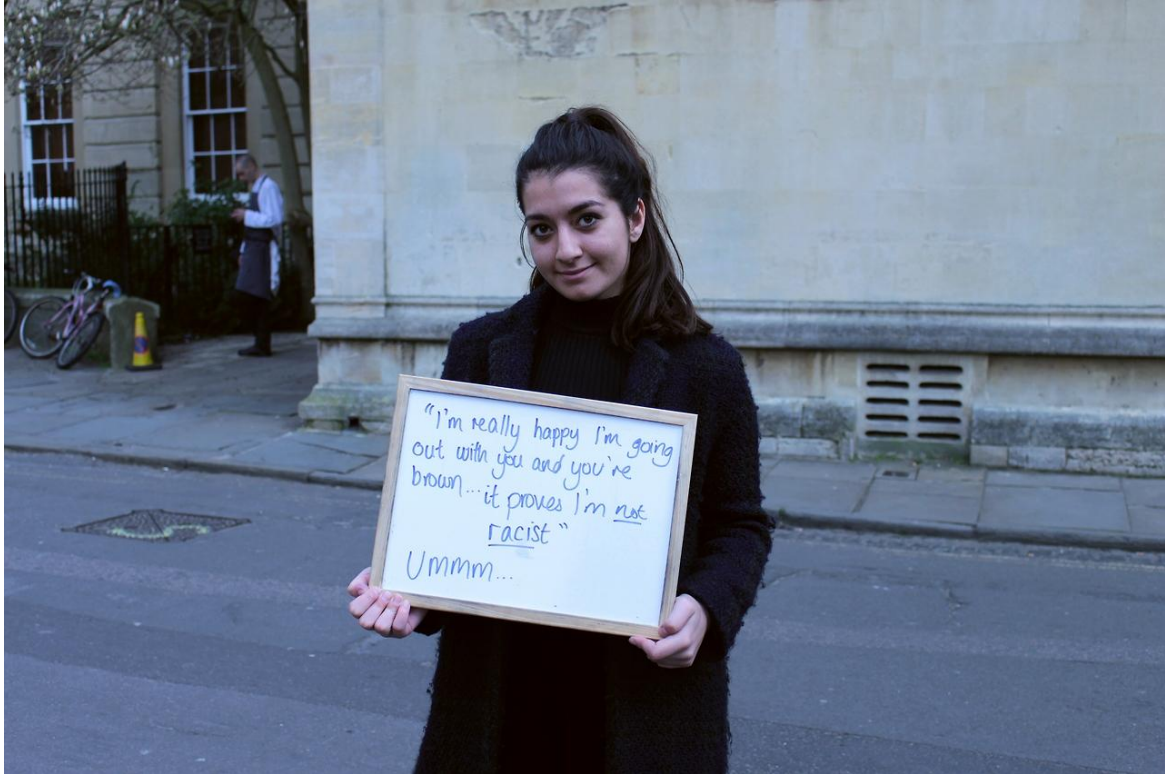 "I'm really happy I'm going
out with you and you're
brown...it proves I'm not
racist"
Ummm...